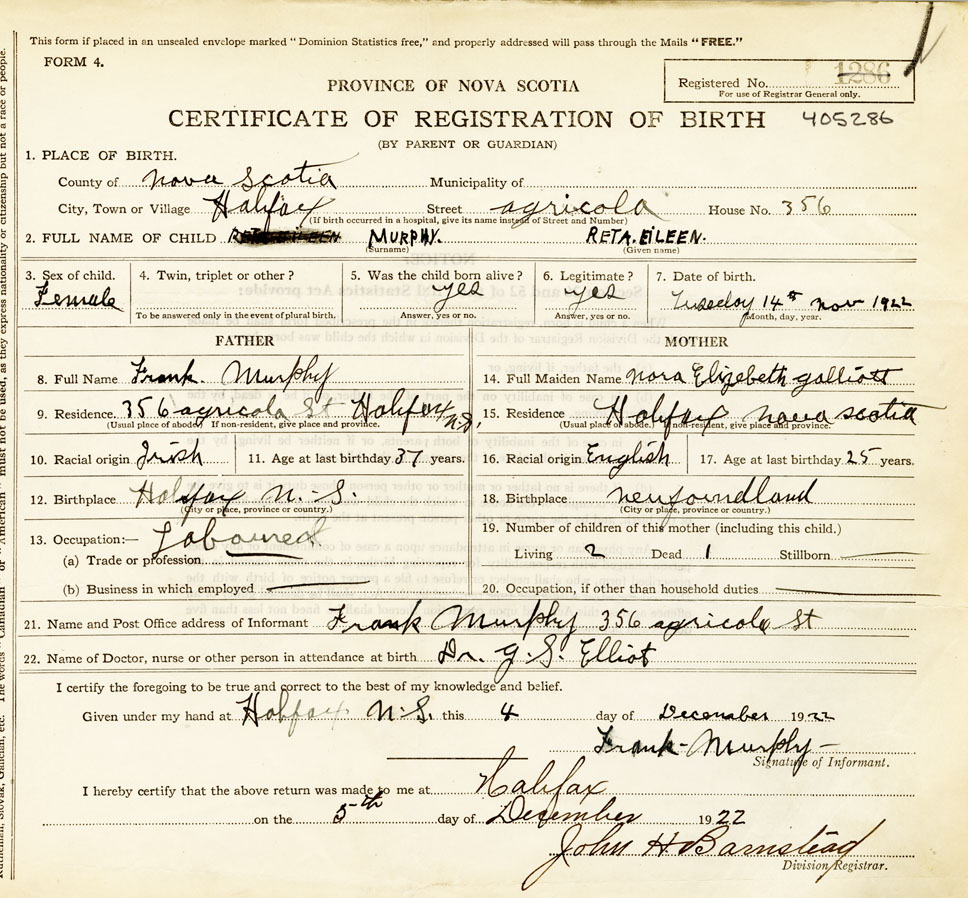 This form if placed in an unsealed envelope marked "Dominion Statistics free," and properly addressed will pass through the Mails "FREE."
FORM 4.
Registered No. 1286
For use of Registrar General only.
PROVINCE OF NOVA SCOTIA
CERTIFICATE OF REGISTRATION OF BIRTH 405286
(BY PARENT OR GUARDIAN)
1. PLACE OF BIRTH.
County of Nova Scotia Municipality of
City, Town or Village Halifax Street agricola House No. 356
(If birth occurred in a hospital, give its name instead of Street and Number)
2. FULL NAME OF CHILD RETA EILEEN MURPHY. RETA. EILEEN.
(Surname) (Given name)
3. Sex of child. 4. Twin, triplet or other? 5. Was the child born alive? 6. Legitimate? 7. Date of birth.
Female yes yes Tuseday 14th nov 1922
To be answered only in the event of plural birth. Answer, yes or no. Answer, yes or no. Month, day, year.
FATHER MOTHER
8. Full Name Frank. Murphy 14. Full Maiden Name nora Elizabeth galliott
9. Residence 356 agricola St Halifax n.s. 15. Residence Halifax nova scotia
(Usual place of abode) If non-resident, give place and province. (Usual place of abode.) If non-resident, give place and province.
10. Racial origin Irish 11. Age at last birthday 37 years. 16. Racial origin English 17. Age at last birthday 25 years.
12. Birthplace Halifax N.-S. 18. Birthplace newfoundland
(City or place, province or country.) (City or place, province or country.)
13. Occupation:— 19. Number of children of this mother (including this child.)
(a) Trade or profession Living 2 Dead 1 Stillborn
(b) Business in which employed 20. Occupation, if other than household duties
21. Name and Post Office address of Informant Frank Murphy 356 agricola St
22. Name of Doctor, nurse or other person in attendance at birth Dr. G. S. Elliot
I certify the foregoing to be true and correct to the best of my knowledge and belief.
Given under my hand at Halifax N.S. this 4 day of December 1922
Frank-Murphy-
Signature of Informant.
I hereby certify that the above return was made to me at Halifax
on the 5th day of December 1922
John H Barnstead
Division Registrar.